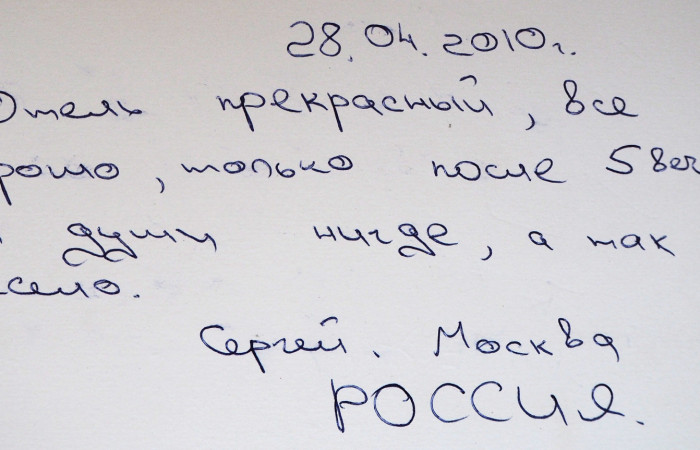 28.04.2010г.
Отель прекрасный, все
рошо, только после 5 веч
души нигде, а так
село.
Сергей. Москва
РОССИЯ.